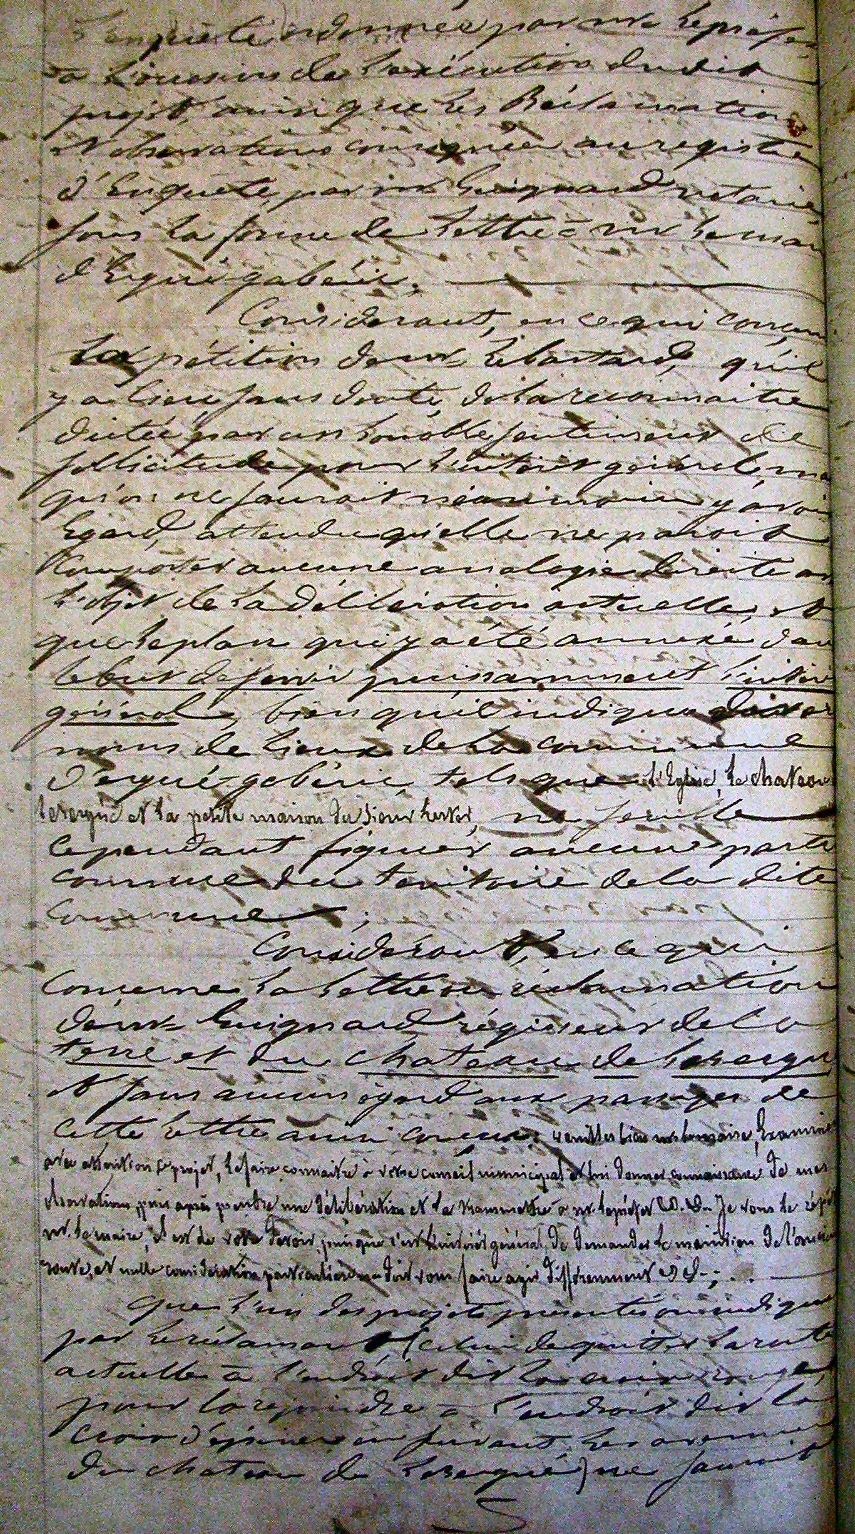 l'enquête ordonnée par mr le préfet
à l'occasion de l'exécution du dit
projet ainsi que les Réclamations
et observations consignées au registre
d'Enquête par mr Guignard notaire
sous la forme de lettre à mr le maire
d'Ergué-gabéric.
Considérant, en ce qui concerne
la pétition de mr Lebastard, qu'il
y a lieu sans doute de la reconnaitre
dictée par un honorable sentiment de
sollicitude pour l'intérêt général, mais
qu'on ne saurait néanmoins y avoir
Egard, attendu qu'elle ne paroit
comporter aucune analogie directe avec
l'objet de la délibération actuelle, et
que le plan qui y a été annexé dans
le but de servir puissamment l'intérêt
général, bien qu'il indique divers
noms de lieux de la commune
d'ergué-gabéric, tels que l'Eglise, le chateau
Lezergué et la petite maison du sieur, ne semble
cependant figurer aucune partie
connue du territoire de la dite
Commune;
Considérant, en ce qui
concerne la lettre en réclamation
de mr Guignard régisseur de la
terre et du chateau de Lezergué
et sans aucun égard aux passages de
cette lettre ainsi conçus: veuillez bien mr le maire, Examiner
avec attention ce projet, le faire connaitre à votre conseil municipal et lui donner connaissance de mes
observations, puis après prendre une délibération et la transmettre à mr le préfet &.&. Je vous le répète
mr le maire, il est de votre devoir, puisque c'est l'intérêt général, de demander le maintien de l'ancienne
route, et nulle considération particulière ne doit vous faire agir différemment &.&.;
Que l'un des projets présentés ou indiqués
par le réclamant (celui de quitter la route
actuelle à l'endroit dit la croix rouge
pour la rejoindre à l'endroit dit la
croix d'épinière en suivant les avenues
du chateau de Lezergué) ne saurait